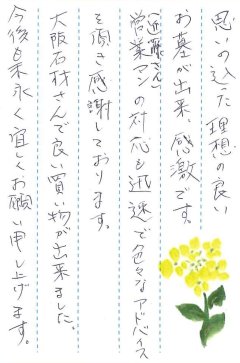 思いの込った理想の良い
お墓が出来、感激です。
(近藤さん)
営業マンの対応も迅速で色々なアドバイス
を頂き感謝しております。
大阪石材さんで良い買い物が出来ました。
今後も末永く宜しくお願い申し上げます。